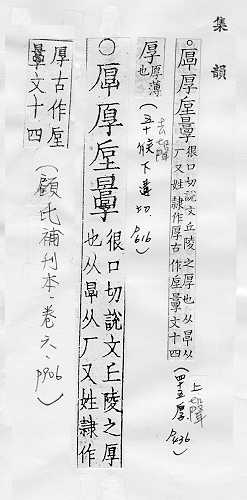 集韻
○𠪋厚垕㫗 很口切說文丘陵之厚也从㫗从
厂又姓隷作厚古作垕㫗文十四
(上聲
四十五厚
P436)
厚 厚薄
也
(去聲
五十候下遘切
P616)
○𠪋厚垕㫗 很口切說文丘陵之厚
也从㫗从厂又姓隷作
厚古作垕
㫗文十四
(顧氏補刊本·卷六·
P906)